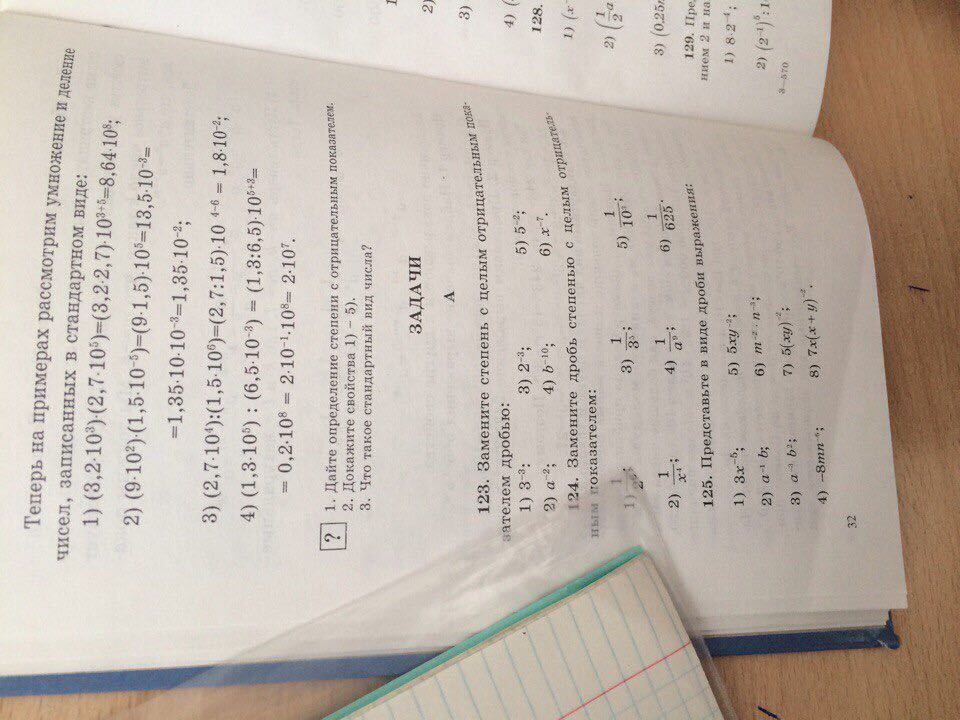 Теперь на примерах рассмотрим умножение и деление
чисел, записанных в стандартном виде:
1) (3,2·10³)·(2,7·10⁵)=(3,2·2,7)·10³⁺⁵=8,64·10⁸;
2) (9·10²)·(1,5·10⁻⁵)=(9·1,5)·10⁵=13,5·10⁻³=
=1,35·10·10⁻³=1,35·10⁻²;
3) (2,7·10⁴):(1,5·10⁶)=(2,7:1,5)·10 ⁴⁻⁶ = 1,8·10⁻²;
4) (1,3·10⁵) : (6,5·10⁻³) = (1,3:6,5)·10⁵⁺³=
= 0,2·10⁸ = 2·10⁻¹·10⁸= 2·10⁷.
? 1. Дайте определение степени с отрицательным показателем.
2. Докажите свойства 1) – 5).
3. Что такое стандартный вид числа?
ЗАДАЧИ
А
123. Замените степень с целым отрицательным пока-
зателем дробью:
1) 3⁻³; 3) 2⁻³; 5) 5⁻²;
2) a⁻²; 4) b⁻¹⁰; 6) x⁻⁷.
124. Замените дробь степенью с целым отрицатель-
ным показателем:
1) 3) 5)
2) 1/x⁴; 4) 1/a⁹; 6) 1/625.
125. Представьте в виде дроби выражения:
1) 3x⁻⁵; 5) 5xy⁻²;
2) a⁻¹ b; 6) m⁻² · n⁻³;
3) a⁻³ b²; 7) 5(xy)⁻²;
4) –8mn⁻⁶; 8) 7x(x + y)⁻².
32
2)
3)
4) (
128.
1) (x⁻
2) (1/2 a
3) (0,25
129. Пре
нием 2 и на
1) 8·2⁻⁴;
2) (2⁻¹)⁵:1
3—570